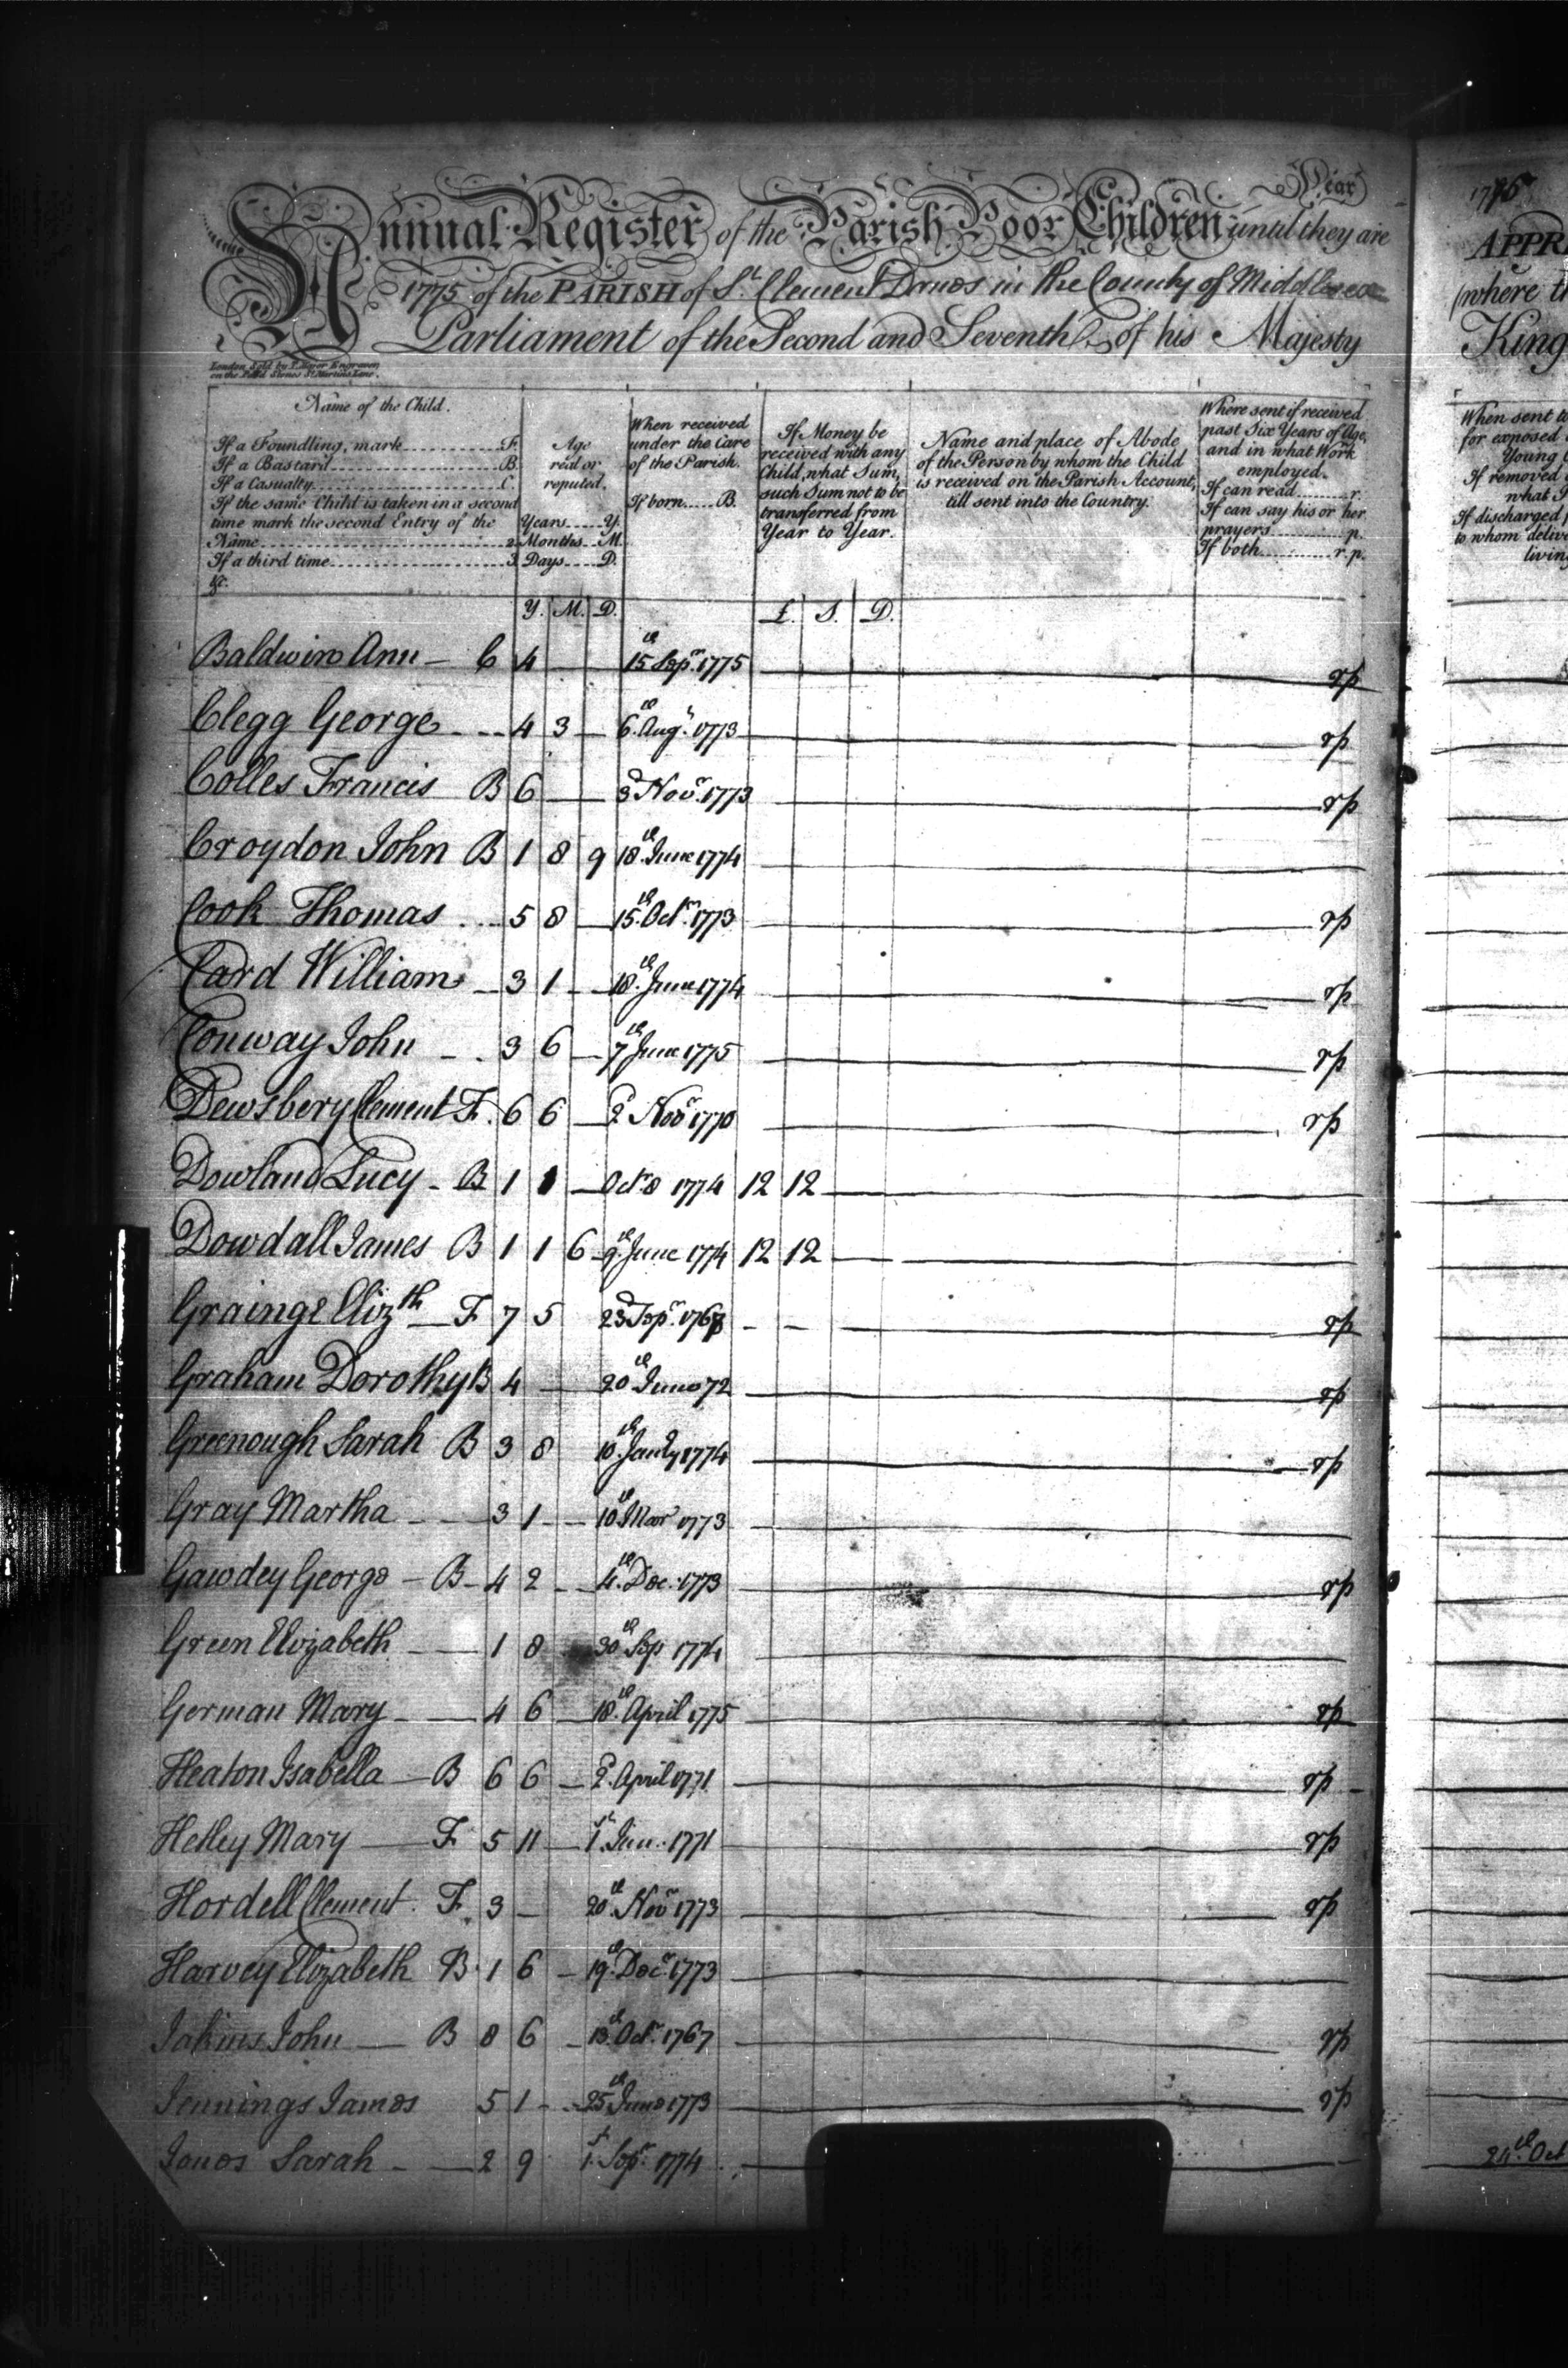 Year
Annual Register of the Parish Poor Children until they are
1775 of the PARISH of St. Clement Danes in the County of Middlesex
Parliament of the Second and Seventh of his Majesty
London Sold by
Name of the Child.
If a Foundling, mark F.
If a Bastard B.
If a Casualty C.
If the same Child is taken in a second
time mark the second Entry of the
Name 2
If a third time 3
&c.
Age
real or
reputed.
Years Y.
Months M.
Days D.
When received
under the Care
of the Parish.
If born B.
If Money be
received with any
Child, what Sum,
such Sum not to be
transferred from
Year to Year.
Name and place of Abode
of the Person by whom the Child
is received on the Parish Account,
till sent into the Country.
Where sent if received
past Six Years of Age,
and in what Work
employed.
If can read r.
If can say his or her
prayers p.
If both r.p.
Y. M. D. £. S. D.
Baldwin Ann — C 4 15th Sepr. 1775 rp
Clegg George 4 3 — 6th Augt. 1773 rp
Colles Francis B 6 — 3d Novr. 1773 rp
Croydon John B 1 8 9 18th June 1774
Cook Thomas 5 8 — 15th Octr. 1773 rp
Card William — 3 1 — 18th June 1774 rp
Conway John — 3 6 — 7th June 1775 rp
Dewsbery Clement F. 6 6 — 2d Novr 1770 rp
Dowland Lucy — B 1 1 — Octr 8 1774 12 12 —
Dowdall James B 1 1 6 9th June 1774 12 12 —
Grainge Elizth — F 7 5 23d Sepr. 1768 - - rp
Graham Dorothy B 4 — 20th June 72 rp
Greenough Sarah B 3 8 10th Jany 1774 rp
Gray Martha — 3 1 — 10th Mar 1773
Gawdey George — B — 4 2 — 4th Dec. 1773 rp
Green Elizabeth — 1 8 30th Sep 1774
German Mary — 4 6 — 18th April 1775 rp
Heaton Isabella — B 6 6 — 2d April 1771 rp
Hetley Mary — F. 5 11 — 1st Jan. 1771 rp
Hordell Clement. F. 3 — 20th Novr 1773 rp
Harvey Elizabeth B. 1 6 — 19th Decr. 1773
Jakins John — B 8 6 — 13th Octr. 1767 rp
Jennings James 5 1 — 25th June 1773 rp
Jones Sarah — 2 9 1st Sepr. 1774
1775
APPR
(where th
King
When sent to
for exposed
Young
If removed
what
If discharged
to whom deliv
livin
24th. Oct